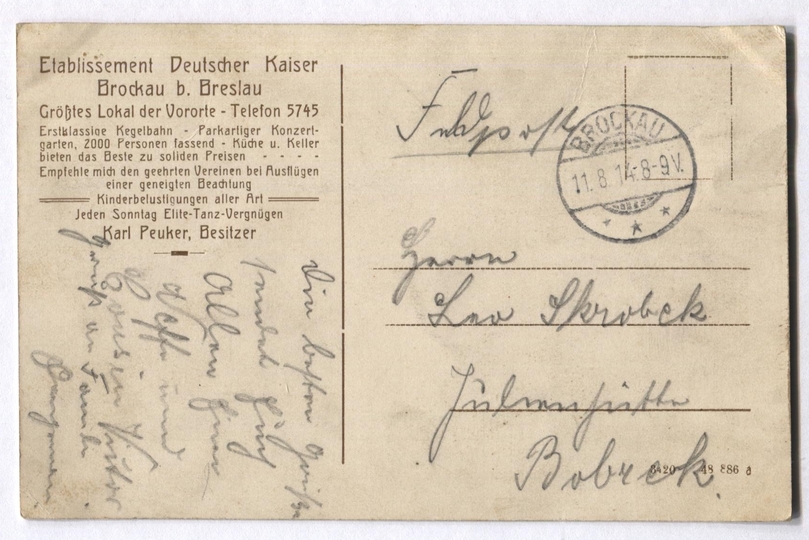 Etablissement Deutscher Kaiser
Brockau b. Breslau
Größtes Lokal der Vororte - Telefon 5745
Erstklassige Kegelbahn - Parkartiger Konzert-
garten, 2000 Personen fassend - Küche u. Keller
bieten das Beste zu soliden Preisen - - - -
Empfehle mich den geehrten Vereinen bei Ausflügen
einer geneigten Beachtung
Kinderbelustigungen aller Art
Jeden Sonntag Elite-Tanz-Vergnügen
Karl Peuker, Besitzer
Die besten Grüße
sendet Euch
Allen Euer
Neffe und
Cousin Viktor
Gruß an Familie
Feldpost
BROCKAU
11.8.14.8-9V.
Herrn
Leo Skrobek
Julienhütte
Bobrek.
48 886